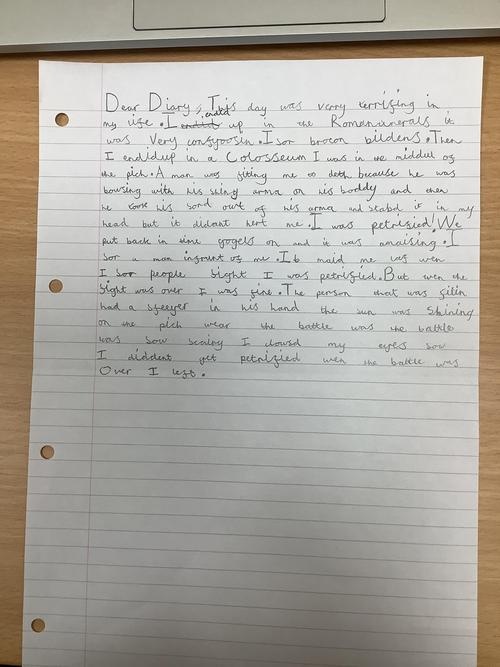 Dear Diary, This day was verry terrifing in
my life. I ended up in the Romaninerals it
was Very confyoosin. I sor brocon bildens. Then
I endidup in a Colosseum I was in the middul of
the pich. A man was fiting me to deth because he was
bowsing with his shing arma on his boddy and then
he took his sord out of his arma and stabd it in my
head but it didant hert me. I was petrizied! We
put back in time gogels on and it was amaising. I
sor a man infrunt of me. It maid me wen
I sor people sight I was petrizied. But wen the
sight was over I was fine. The person that was fitin
had a in his hand the sun was Shining
on the pich wear the battle was the battle
was sow scairy I clowsd my eyes sow
I diddent get petrizied wen the battle was
Over I left.